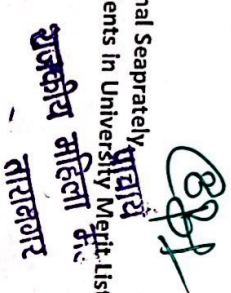 nal Seaprately
ents in University Merit List
प्राचार्य
राजकीय महिला
तारानगर